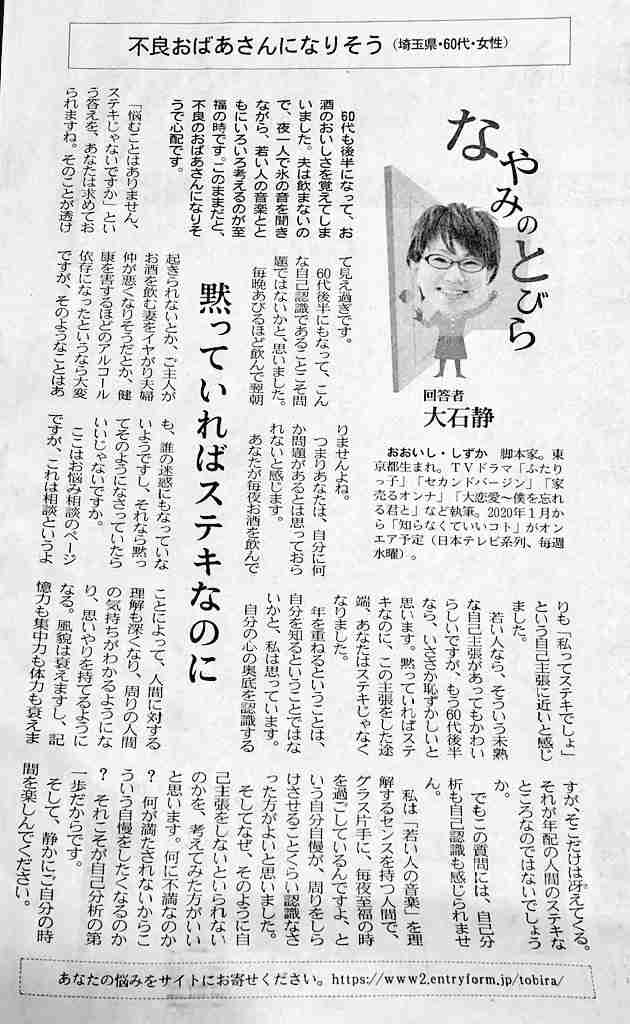 不良おばあさんになりそう(埼玉県・60代・女性)
なやみのとびら
回答者
大石静
おおいし・しずか 脚本家。東
京都生まれ。TVドラマ「ふたり
っ子」「セカンドバージン」「家
売るオンナ」「大恋愛〜僕を忘れ
る君と」など執筆。2020年1月か
ら「知らなくていいコト」がオン
エア予定(日本テレビ系列、毎週
水曜)。
60代も後半になって、お
酒のおいしさを覚えてしま
いました。夫は飲まないの
で、夜一人で氷の音を聞き
ながら、若い人の音楽とと
もにいろいろ考えるのが至
福の時です。このままだと、
不良のおばあさんになりそ
うで心配です。
「悩むことはありません、
ステキじゃないですか」とい
う答えを、あなたは求めてお
られますね。そのことが透け
て見え過ぎです。
60代後半にもなって、こん
な自己認識であることこそ問
題ではないかと、思いました。
毎晩あびるほど飲んで翌朝
黙っていればステキなのに
起きられないとか、ご主人が
お酒を飲む妻をイヤがり夫婦
仲が悪くなりそうだとか、健
康を害するほどのアルコール
依存になったというなら大変
ですが、そのようなことはあ
りませんよね。
つまりあなたは、自分に何
か問題があるとは思っておら
れないと感じます。
あなたが毎夜お酒を飲んで
も、誰の迷惑にもなっていな
いようですし、それなら黙っ
てそのようになさっていたら
いいじゃないですか。
ここはお悩み相談のページ
ですが、これは相談というよ
りも「私ってステキでしょ」
という自己主張に近いと感じ
ました。
若い人なら、そういう未熟
な自己主張があってもかわい
らしいですが、もう60代後半
なら、いささか恥ずかしいと
思います。黙っていればステ
キなのに、この主張をした途
端、あなたはステキじゃなく
なりました。
年を重ねるということは、
自分を知るということではな
いかと、私は思っています。
自分の心の奥底を認識する
ことによって、人間に対する
理解も深くなり、周りの人間
の気持ちがわかるようにな
り、思いやりを持てるように
なる。風貌は衰えますし、記
憶力も集中力も体力も衰えま
すが、そこだけは冴えてくる。
それが年配の人間のステキな
ところなのではないでしょう
か。
でもこの質問には、自己分
析も自己認識も感じられませ
ん。
私は「若い人の音楽」を理
解するセンスを持つ人間で、
グラス片手に、毎夜至福の時
を過ごしているんですよ、と
いう自分自慢が、周りをしら
けさせることくらい認識なさ
った方がよいと思いました。
そしてなぜ、そのように自
己主張をしないといられない
のかを、考えてみた方がいい
と思います。何に不満なのか
? 何が満たされないからこ
ういう自慢をしたくなるのか
? それこそが自己分析の第
一歩だからです。
そして、静かにご自分の時
間を楽しんでください。
あなたの悩みをサイトにお寄せください。https://www2.entryform.jp/tobira/